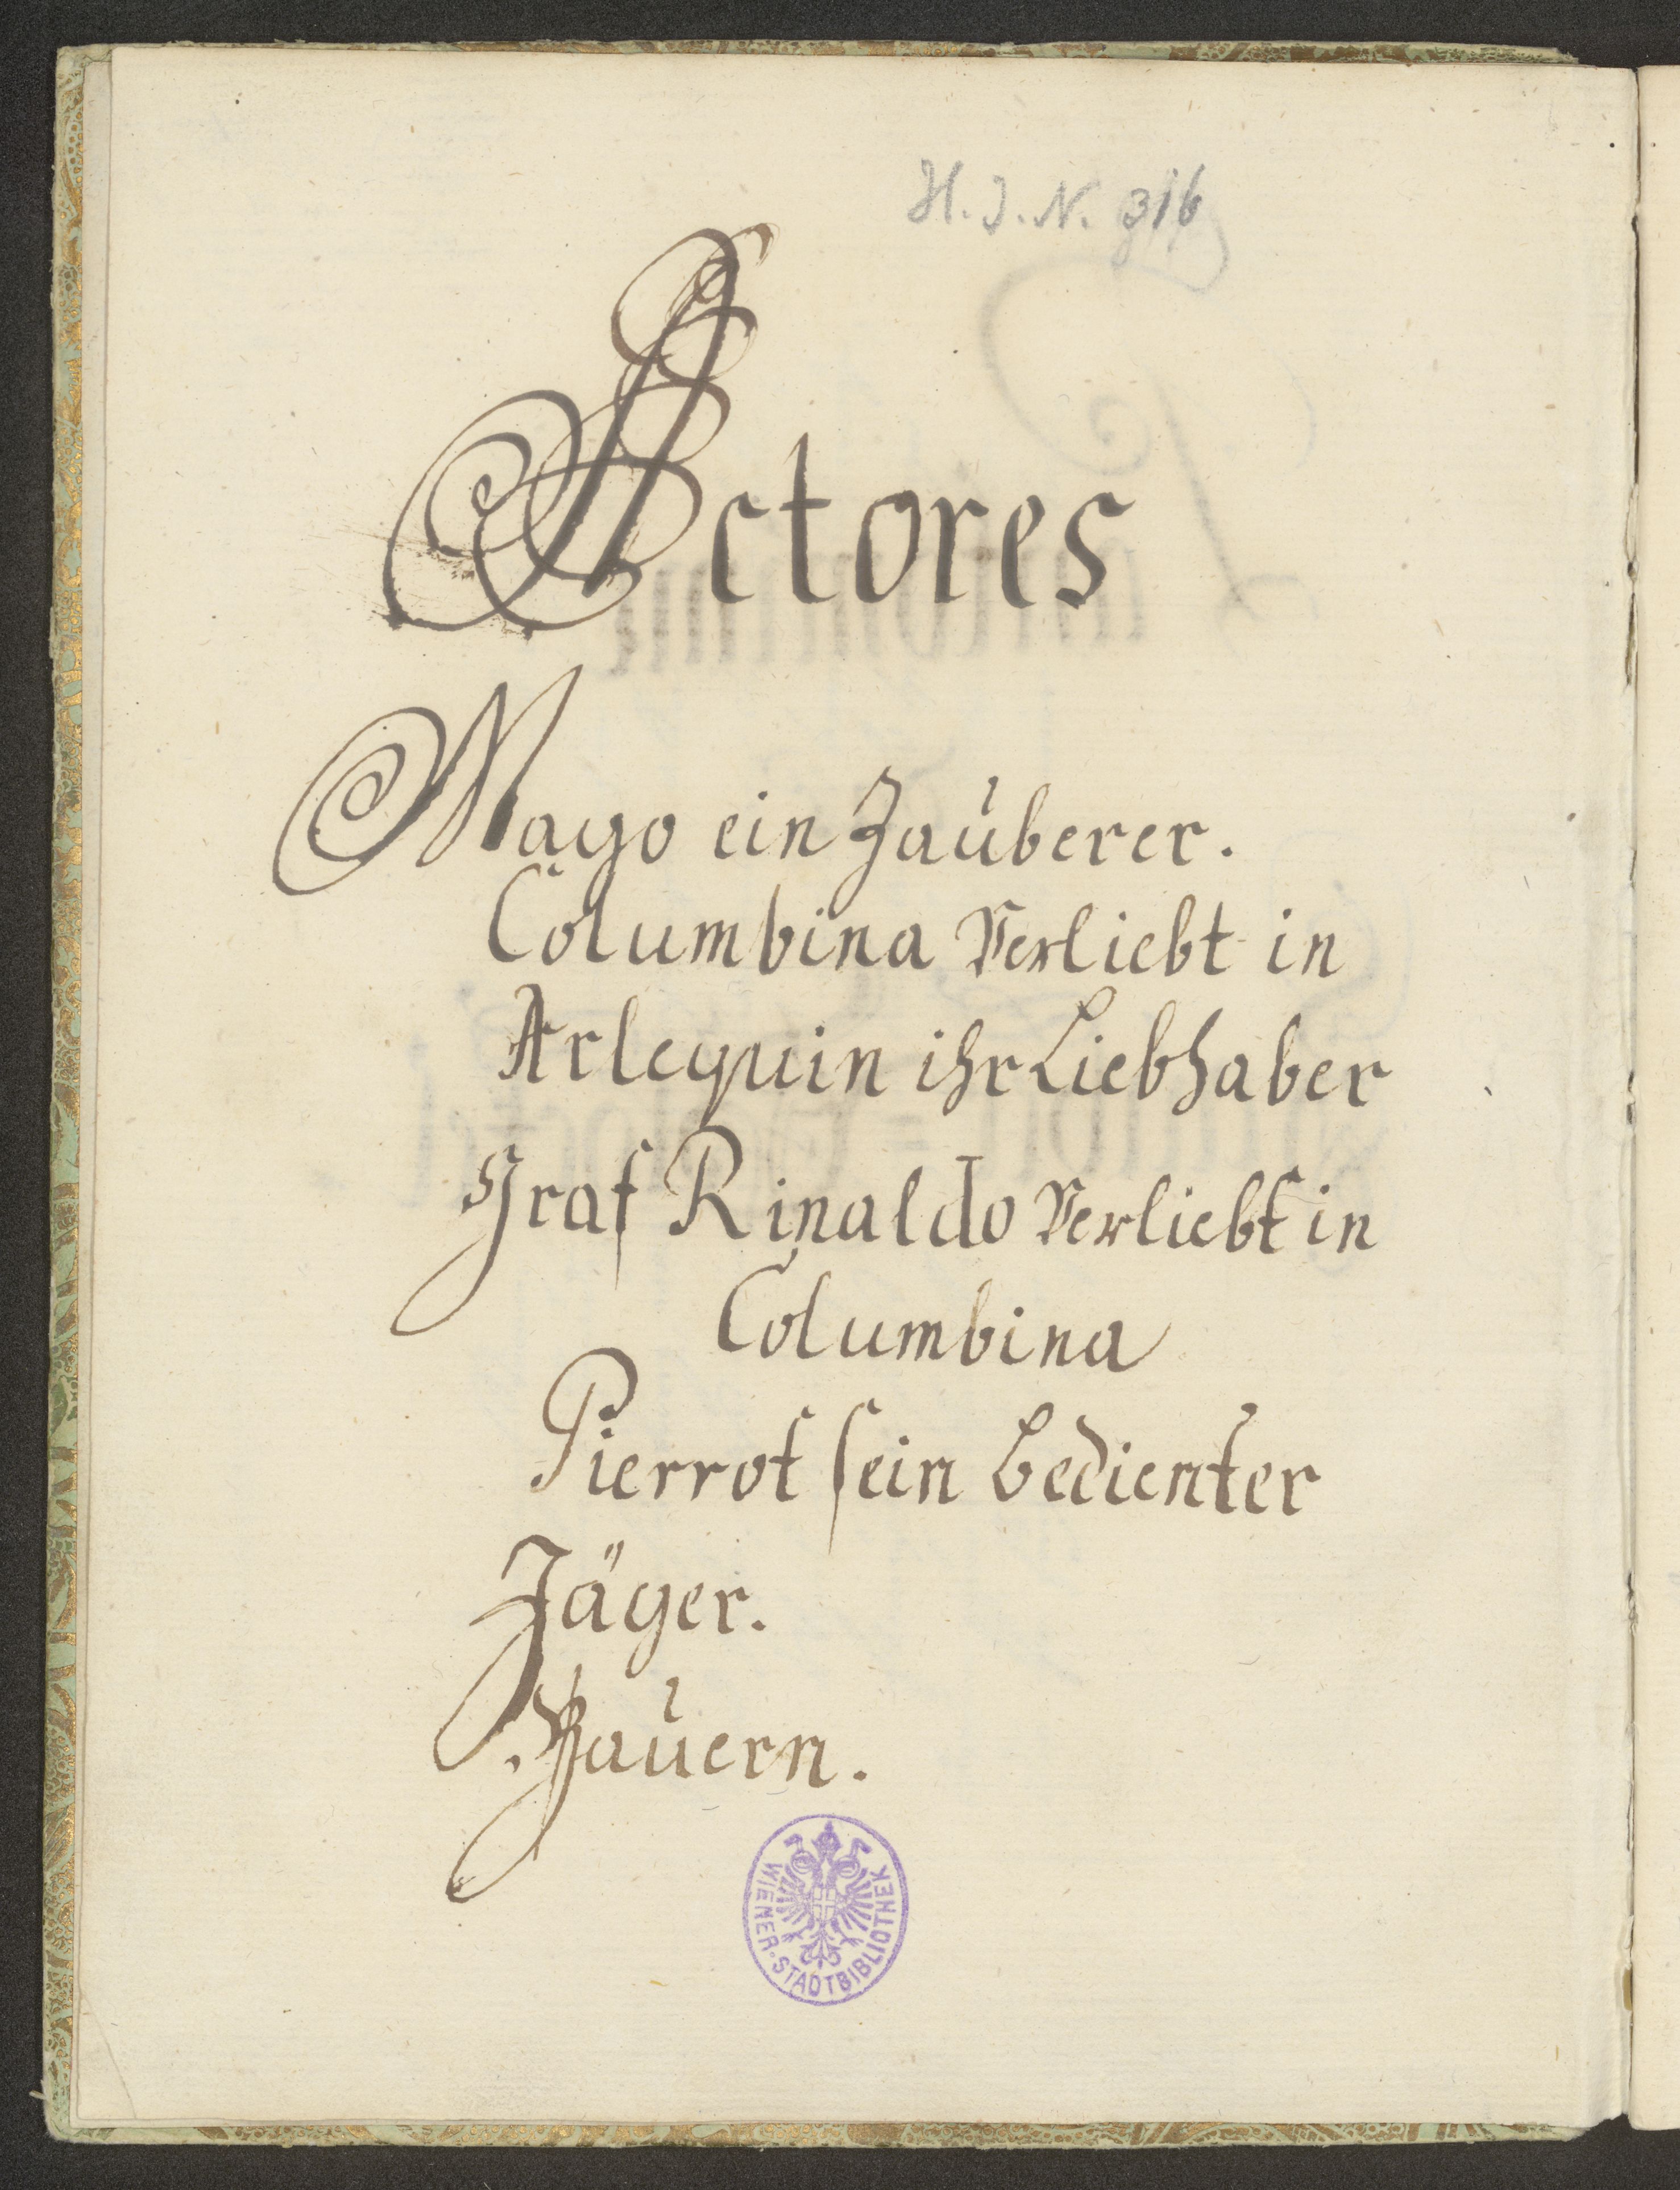 H. I. N. 316
Actores
Mago ein Zauberer.
Columbina Verliebt in
Arlequin ihr Liebhaber
Graf Rinaldo Verliebt in
Columbina
Pierrot sein bedienter
Jäger.
Bauern.
WIENER·STADTBIBLIOTHEK